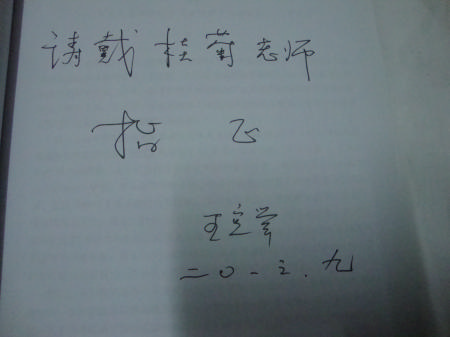 请戴桂菊老师
指正
王立
二〇一三.九